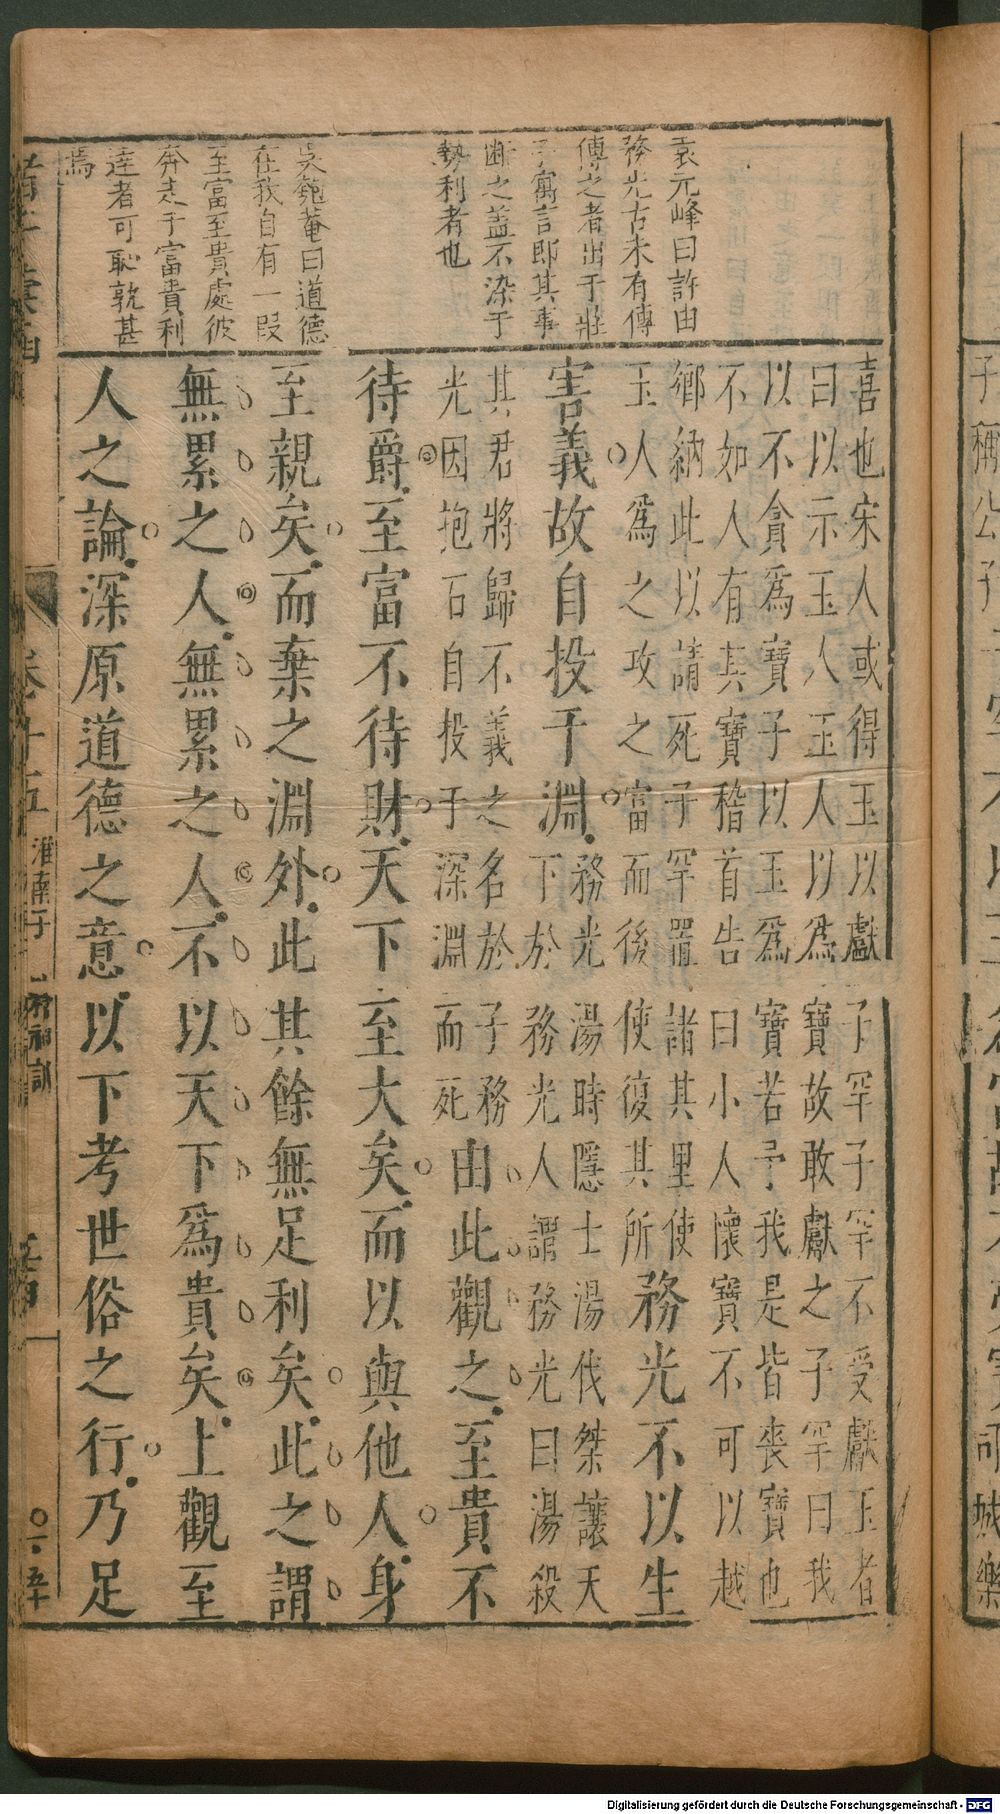 袁元峰曰許由
務光古未有傳
傳之者出于莊
子寓言即其事
断之盖不染于
勢利者也
吳匏菴曰道德
在我自有一段
至富至貴處彼
奔走于富貴利
達者可恥孰甚
焉
喜也宋人或得玉以獻子罕子罕不受獻玉者
曰以示玉人玉人以爲寶故敢獻之子罕曰我
以不貪爲寶子以玉爲寶若予我是皆喪寶也
不如人有其寶稽首告曰小人懷寶不可以越
鄉納此以請死子罕置諸其里使
玉人爲之攻之富而後使復其所
務光不以生
害義故自投于淵
務光湯時隱士湯伐桀讓天
下於務光人謂務光曰湯殺
其君將歸不義之名於子務
光因抱石自投于深淵而死
由此觀之至貴不
待爵至富不待財天下至大矣而以與他人身
至親矣而棄之淵外此其餘無足利矣此之謂
無累之人無累之人不以天下爲貴矣上觀至
人之論深原道德之意以下考世俗之行乃足
卷十五
淮南子
精神訓
Digitalisierung gefördert durch die Deutsche Forschungsgemeinschaft - DFG